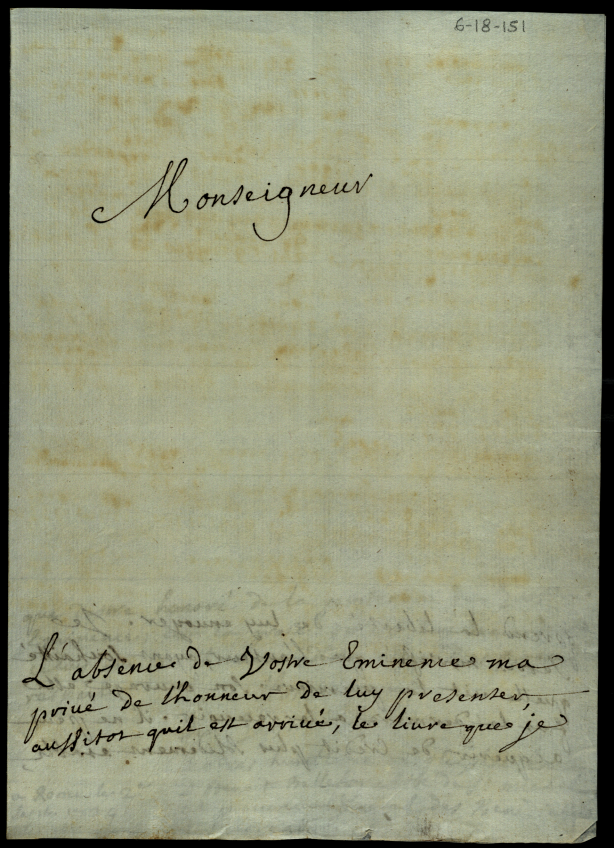 6-18-151
Monseigneur
L'absence de Vostre Eminence ma
privé de l'honneur de luy presenter,
aussitot qu'il est arrivé, le livre que je